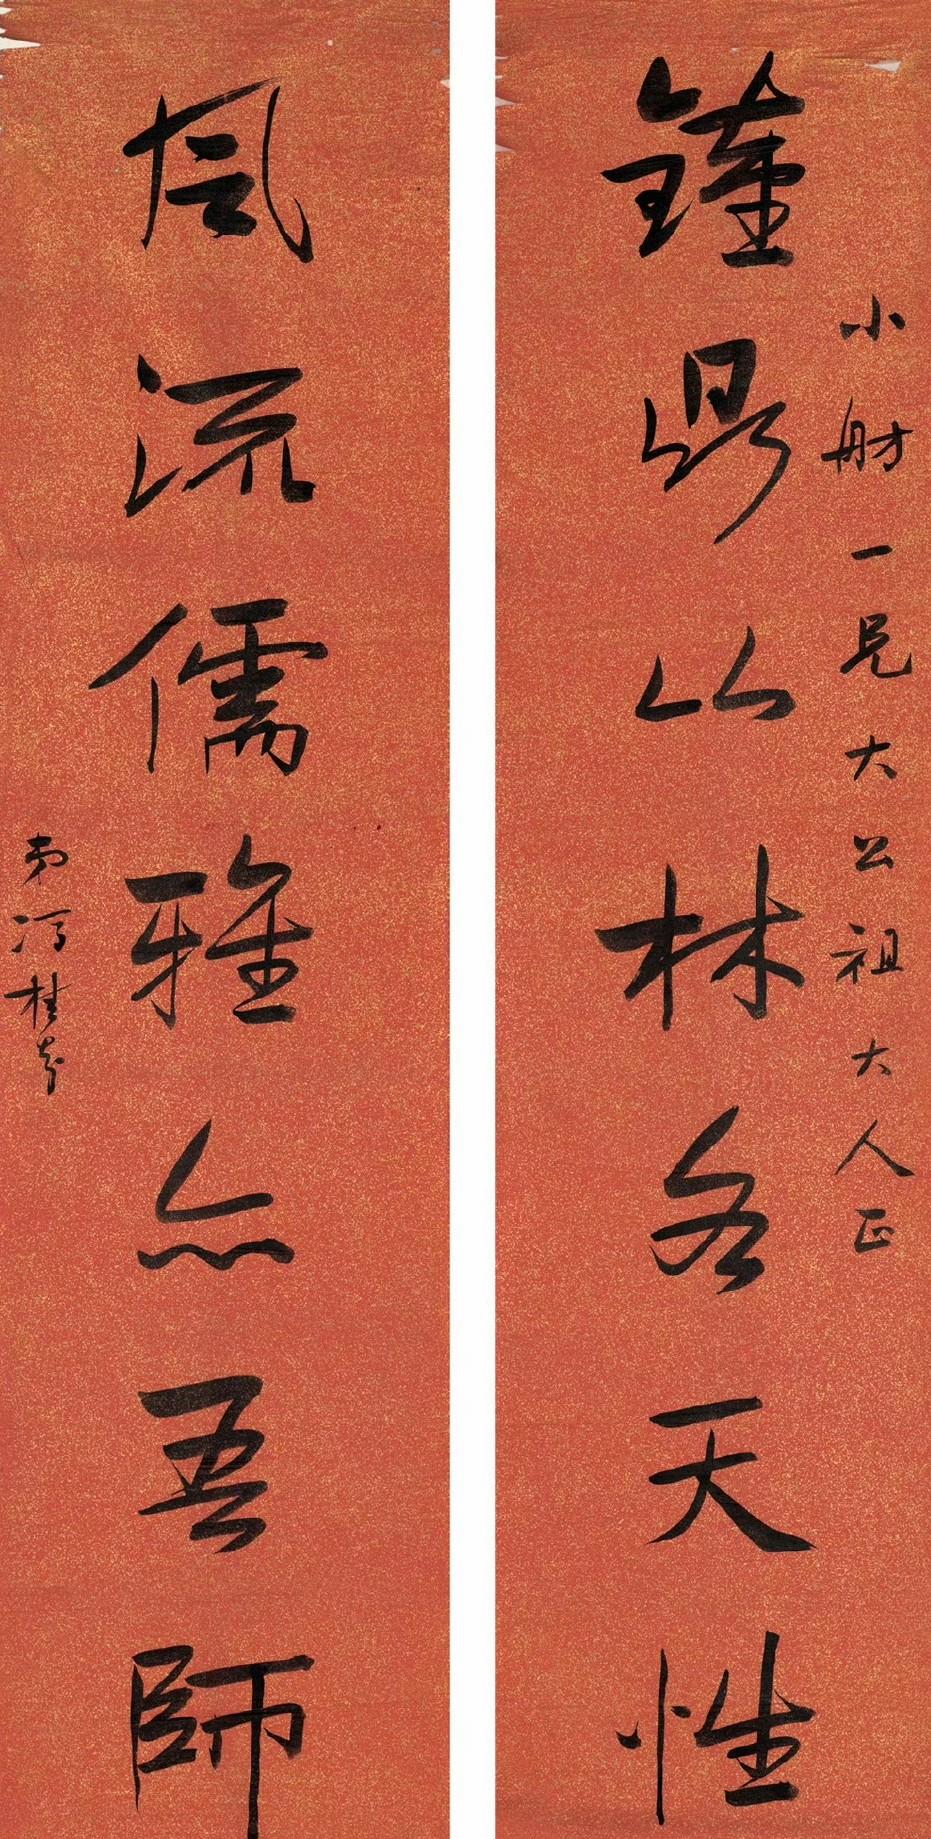 小舫一兄大公祖大人正
鐘鼎山林各天性
風流儒雅亦吾師
弟馮桂芬